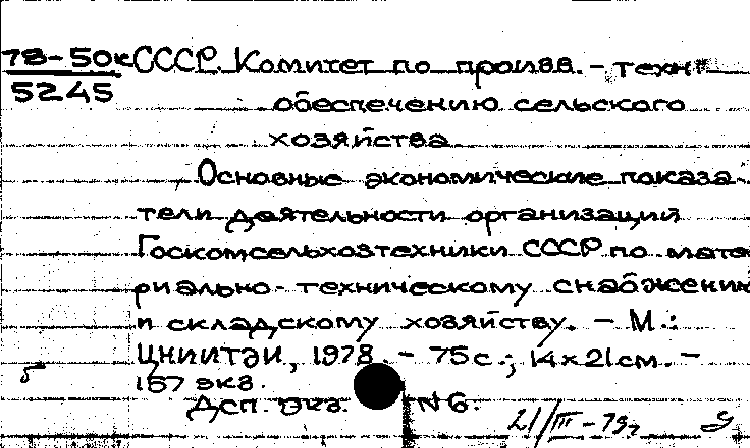 78-50к СССР. Комитет по произв. - техн.
5245
обеспечению сельского
хозяйства
Основные экономические показа-
тели деятельности организаций
Госкомсельхозтехники СССР по мате
риально-техническому снабжению
и складскому хозяйству. - М.:
ЦНИИТЭИ, 1978. - 75с.; 14x21см. -
157 экз.
б
Дсп. Экз. N 6.
21/III-79г